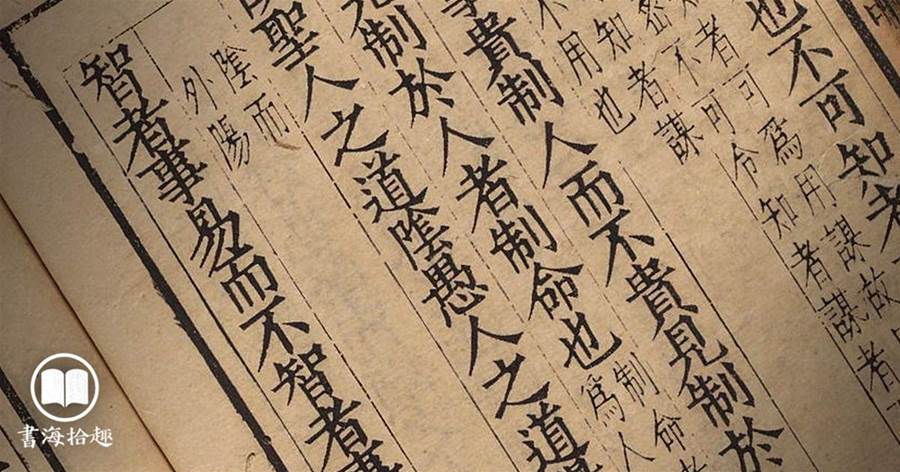 也不可知者
可為用謀故
可令知者謀者
不用也
事貴制人而不貴見制於
見制於人者制命也
制命
為人
聖人之道陰愚人之道
陰而
外陽
智者事易而不智者事
書海拾趣